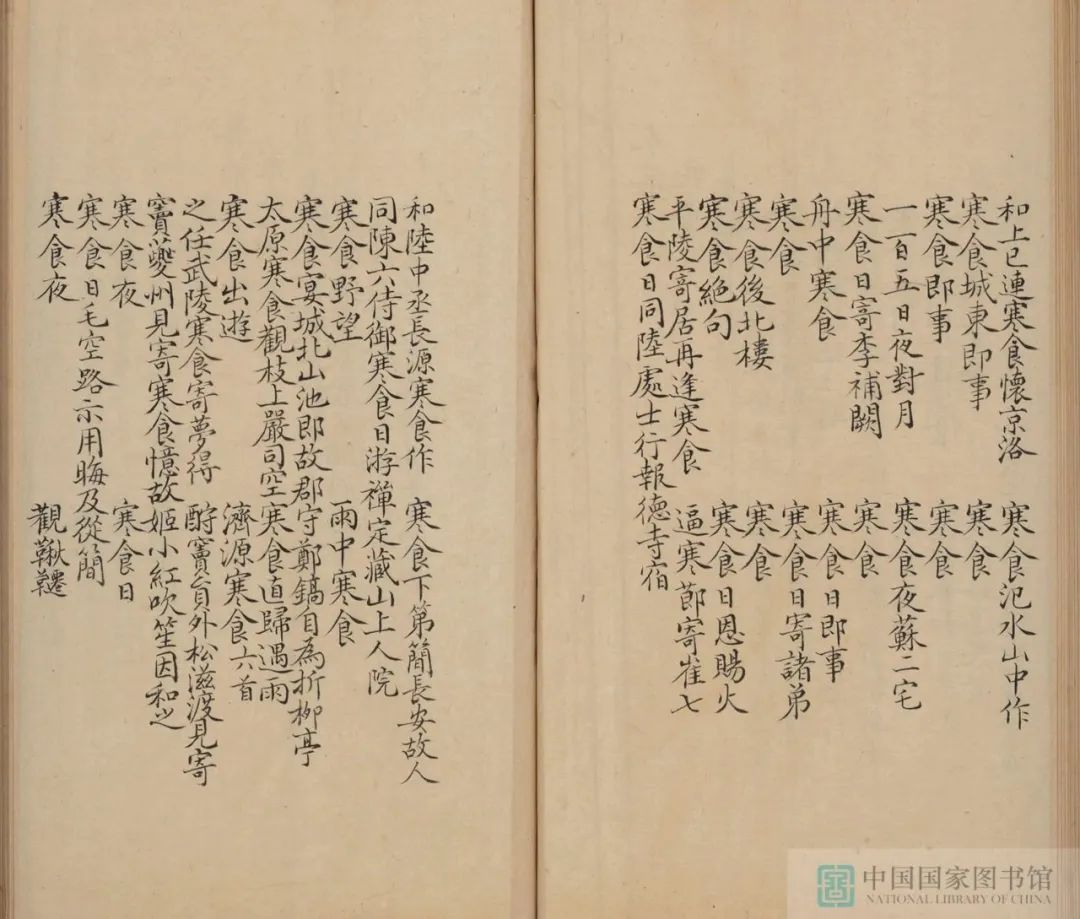 和上巳連寒食懷京洛　寒食汜水山中作
寒食城東即事　寒食
寒食即事　寒食
一百五日夜對月　寒食夜蘇二宅
寒食日寄李補闕　寒食
舟中寒食　寒食日即事
寒食　寒食日寄諸弟
寒食後北樓　寒食
寒食絕句　寒食日恩賜火
平陵寄居再逢寒食　逼寒節寄崔七
寒食日同陸處士行報德寺宿
和陸中丞長源寒食作　寒食下第簡長安故人
同陳六侍御寒食日游禪定藏山上人院
寒食野望　雨中寒食
寒食宴城北山池即故郡守鄭鎬目為折柳亭
太原寒食觀枝上嚴司空　寒食直歸遇雨
寒食出遊　濟源寒食六首
之任武陵寒食寄夢得　酧竇員外松滋渡見寄
竇夔州見寄寒食憶故姬小紅吹笙因和之
寒食夜　寒食日
寒食日毛空路示用晦及從簡
寒食夜　觀鞦韆
中国国家图书馆
NATIONAL LIBRARY OF CHINA